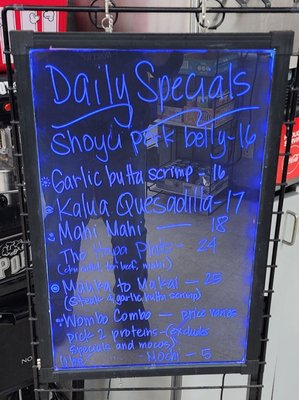 Daily Specials
Shoyu pork belly - 16
Garlic butta scrimp - 16
Kalua Quesadilla - 17
Mahi Mahi — 18
The Hapa Plate - 24
Mauka to Makai - 25
(steak & garlic butta scrimp)
Wombo Combo — price varies
pick 2 proteins - (excluds
specials and mocos)
Ube Mochi - 5